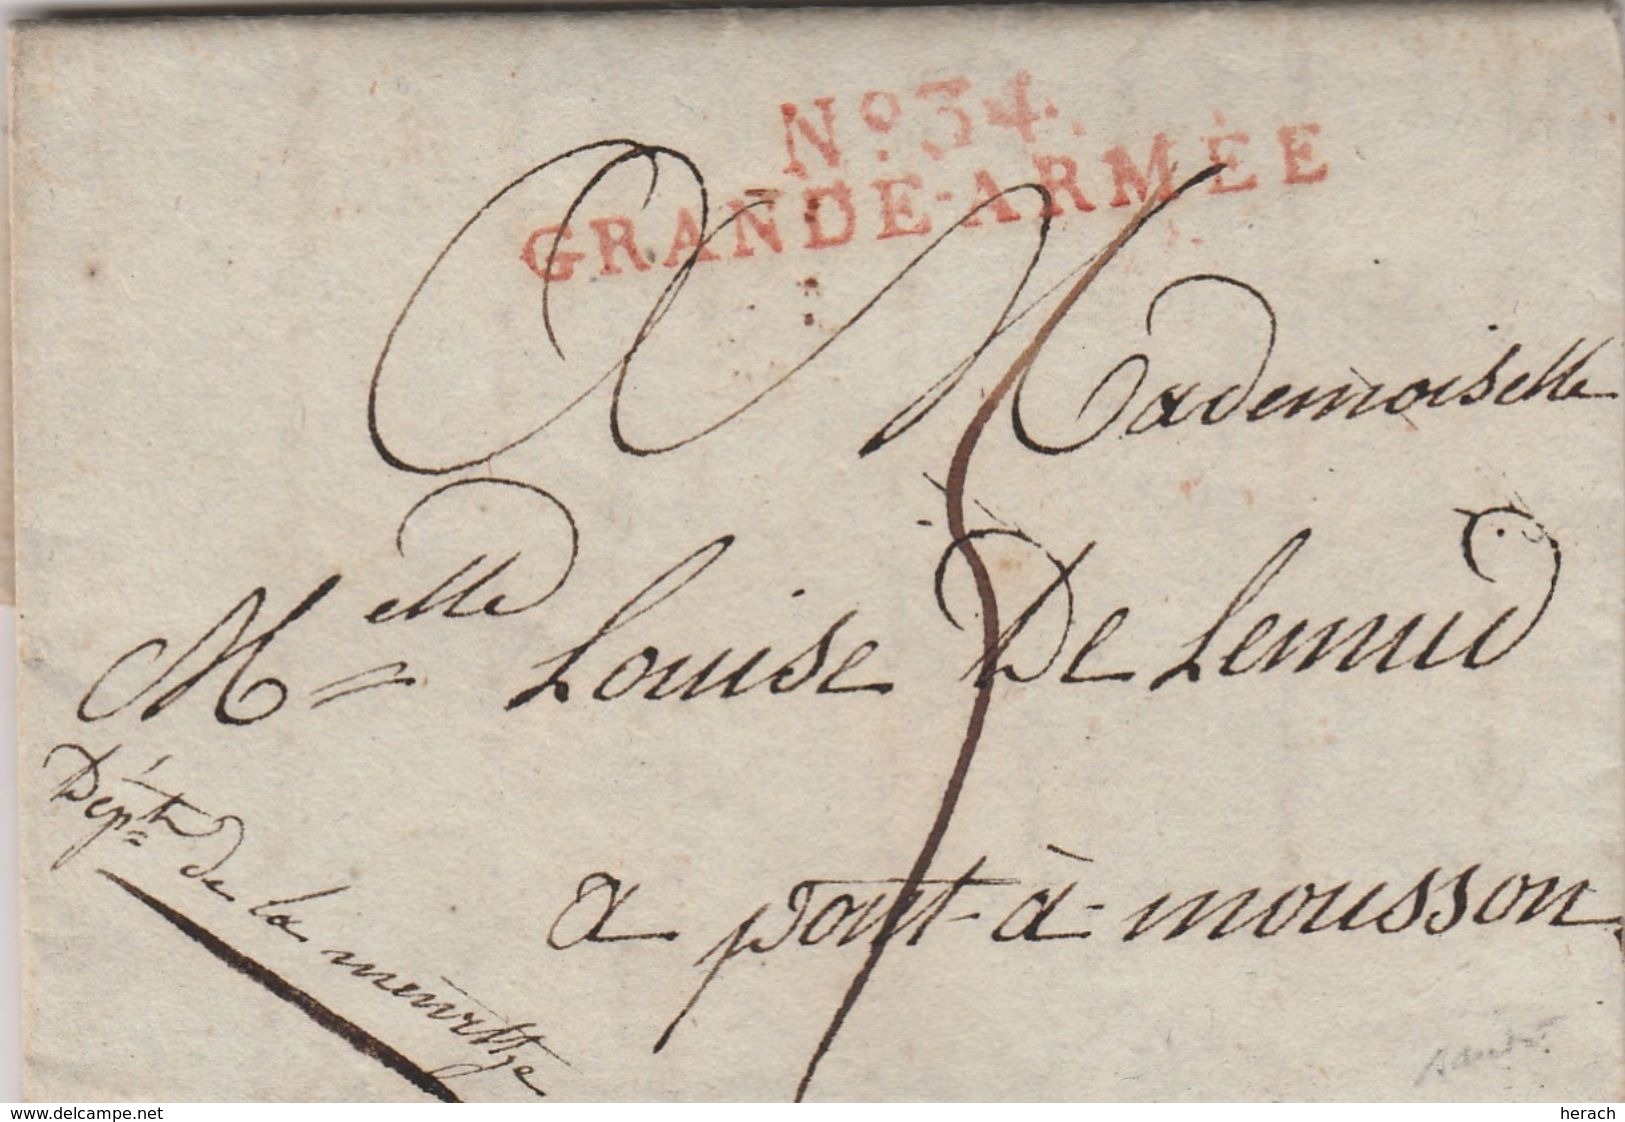 No. 34.
GRANDE-ARMÉE
A Mademoiselle
Melle Louise De Lemud
Dépt. de la meurthe
a pont-à-mousson
www.delcampe.net
herach